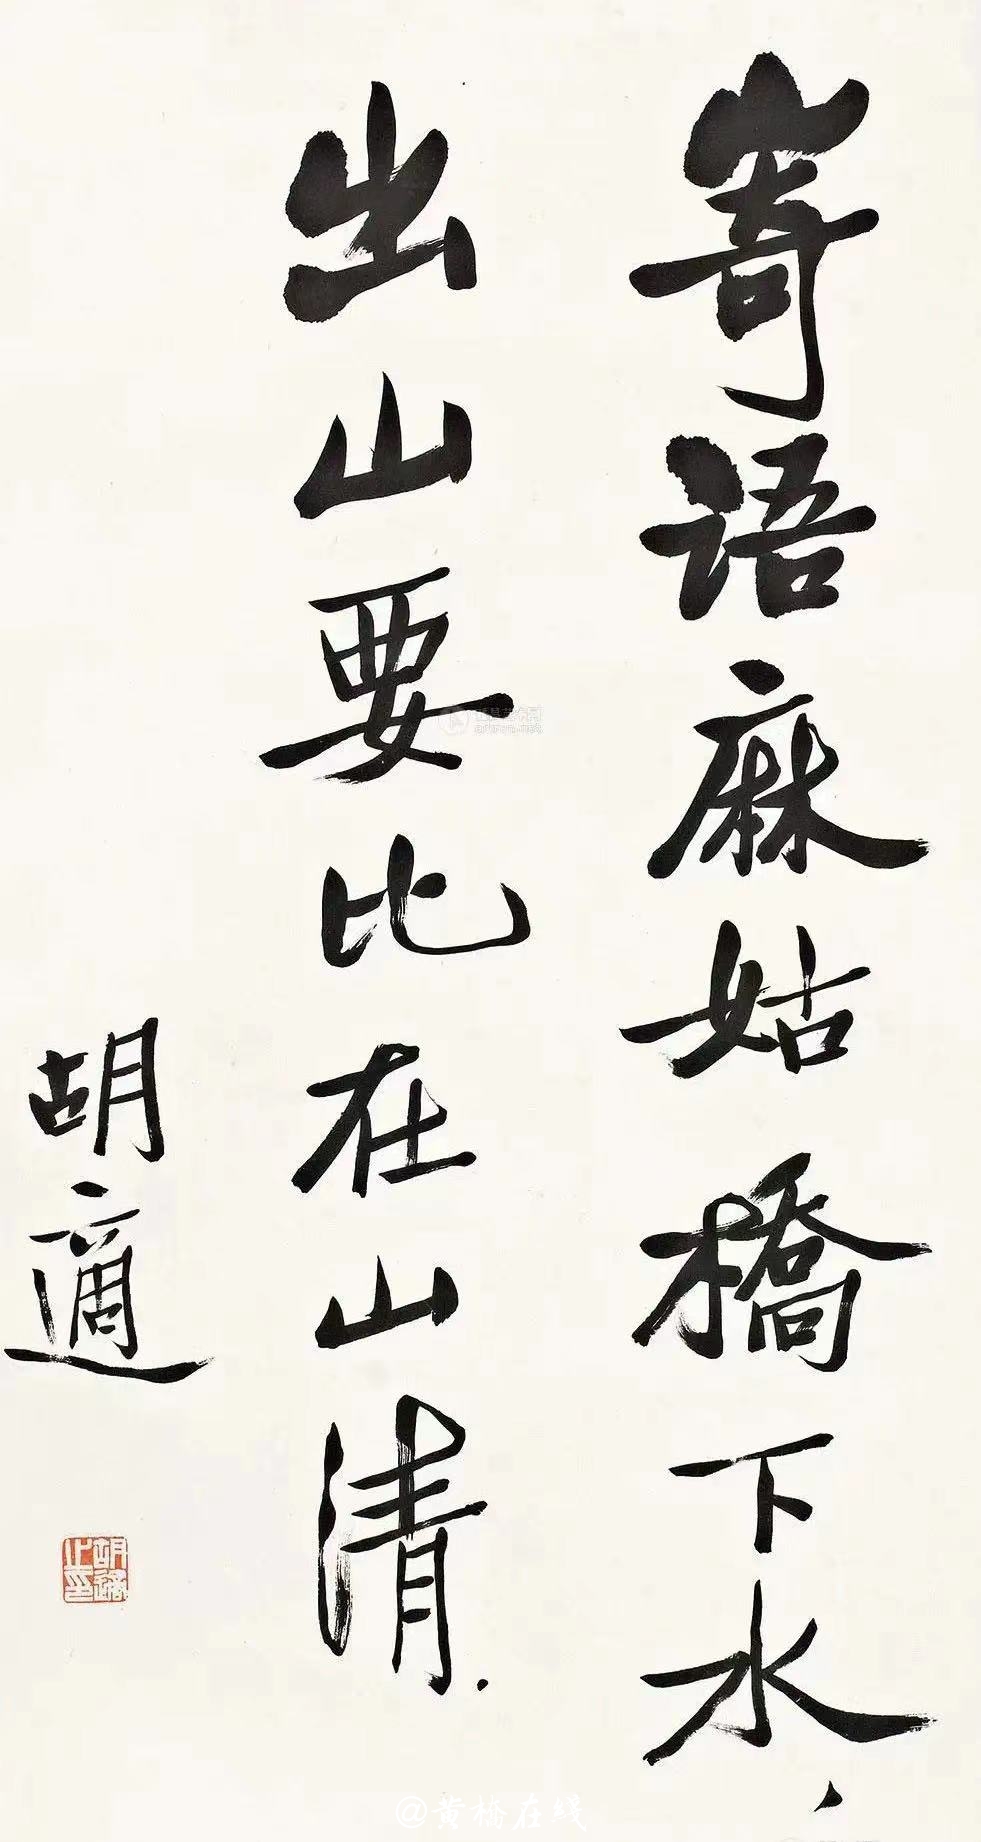 寄語麻姑橋下水，
出山要比在山清.
胡適
胡適之印
artron.net
@黄桥在线